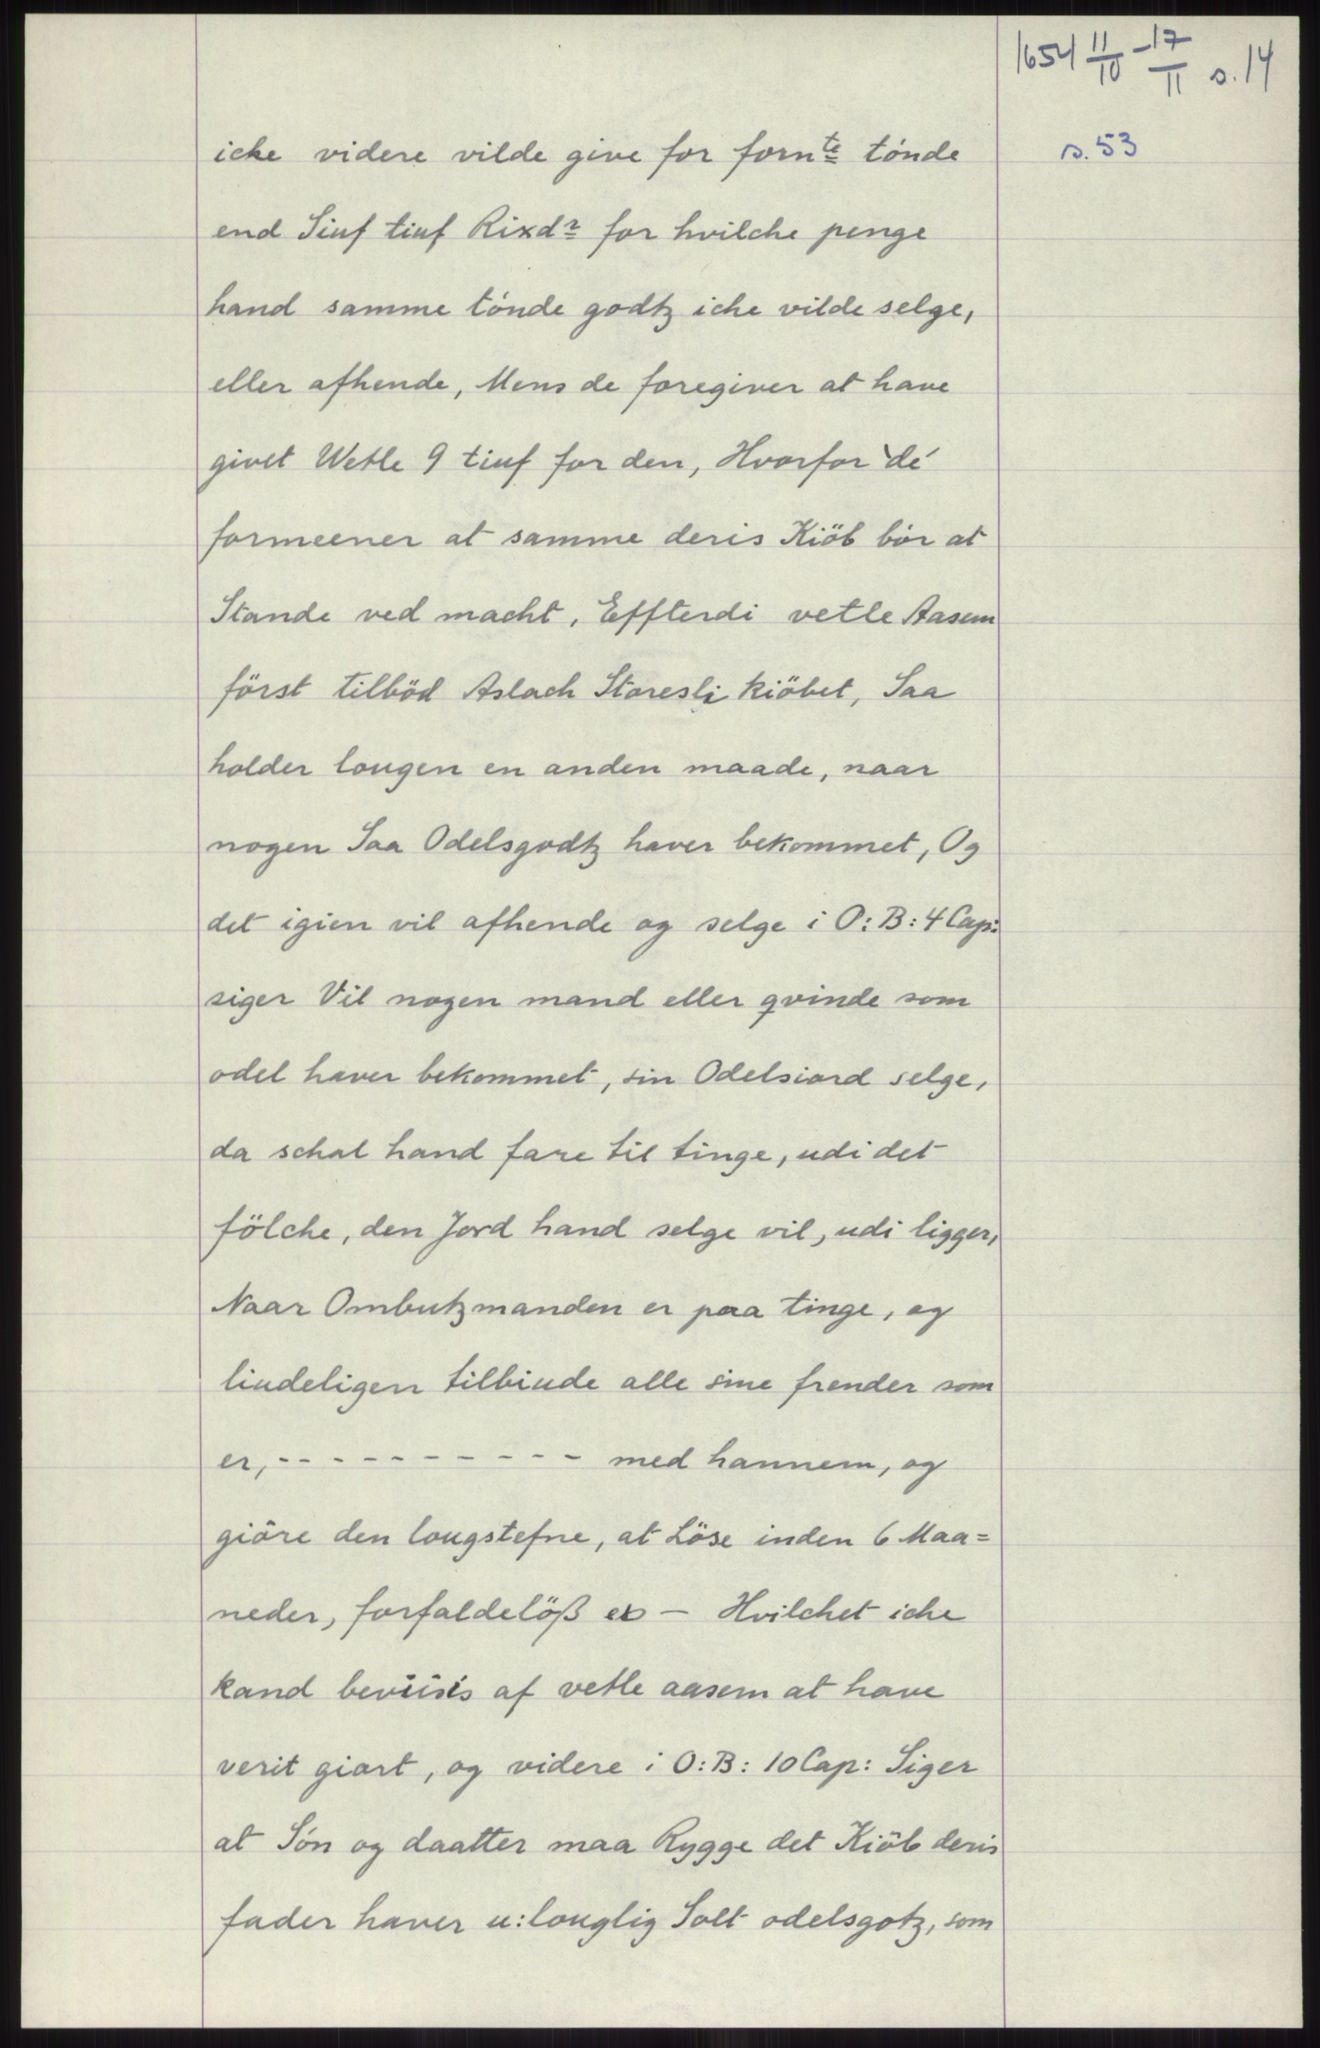 1654 11/10 - 17/11 s. 14
s. 53
iche videre vilde give for fornte tónde
end Siuf tiuf Rixdr for hvilche penge
hand samme tónde godtz iche vilde selge,
eller afhende, Mens de foregiver at have
givet Wetle 9 tiuf for den, Hvorfor `de´
formeener at samme deris Kiöb bör at
Stande ved macht, Effterdi vetle Aasem
först tilböd Aslach Staresli kiöbet, Saa
holder lougen en anden maade, naar
nogen Saa Odelsgodtz haver bekommet, Og
det igien vil afhende og selge i O: B: 4 Cap:
siger Vil nogen mand eller qvinde som
odel haver bekommet, sin Odelsiord selge,
da schal hand fare til tinge, udi det
fölche, den Jord hand selge vil, udi ligger,
Naar Ombutzmanden er paa tinge, og
liudeligen tilbiude alle sine frender som
er, - - - - - - - - - - - med hannem, og
giöre den lougstefne, at Löse inden 6 Maa=
neder, forfaldelöß es — Hvilchet iche
kand beviisis af vetle aasem at have
verit giort, og videre i O: B: 10 Cap: Siger
at Són og daatter maa Rygge det Kiöb deris
fader haver u:louglig Solt odelsgotz, som